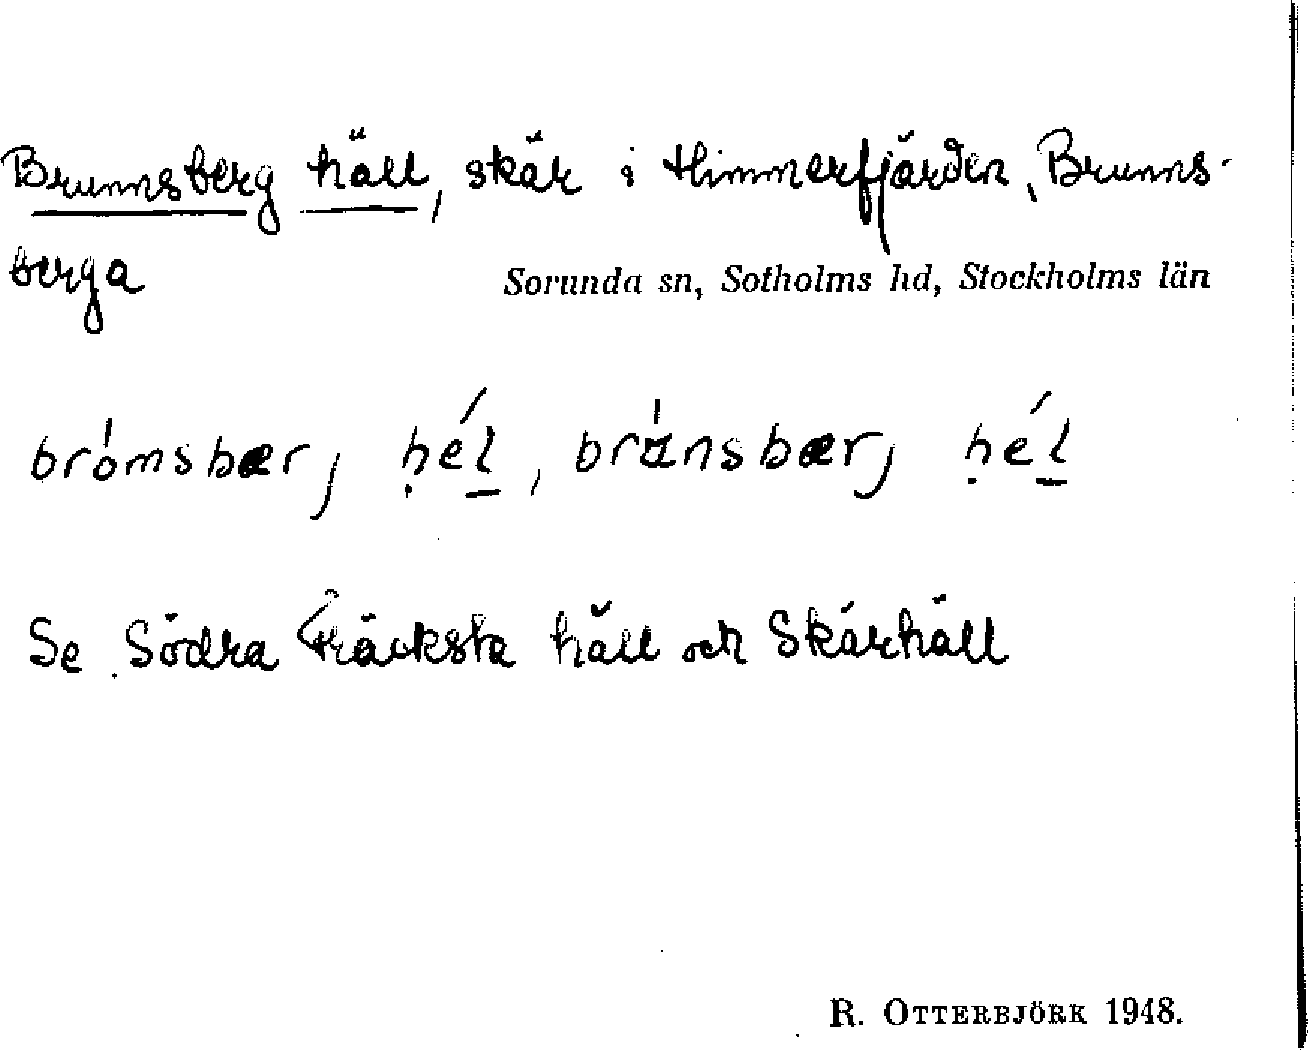 Brunnsberg häll, skär i Himmerfjärden, Brunns-
berga Sorunda sn, Sotholms hd, Stockholms län
brómsbærj ḥél̲, bránsbærj ḥél̲
Se Södra Träcksta häll och Skärhäll
R. OTTERBJÖRK 1948.